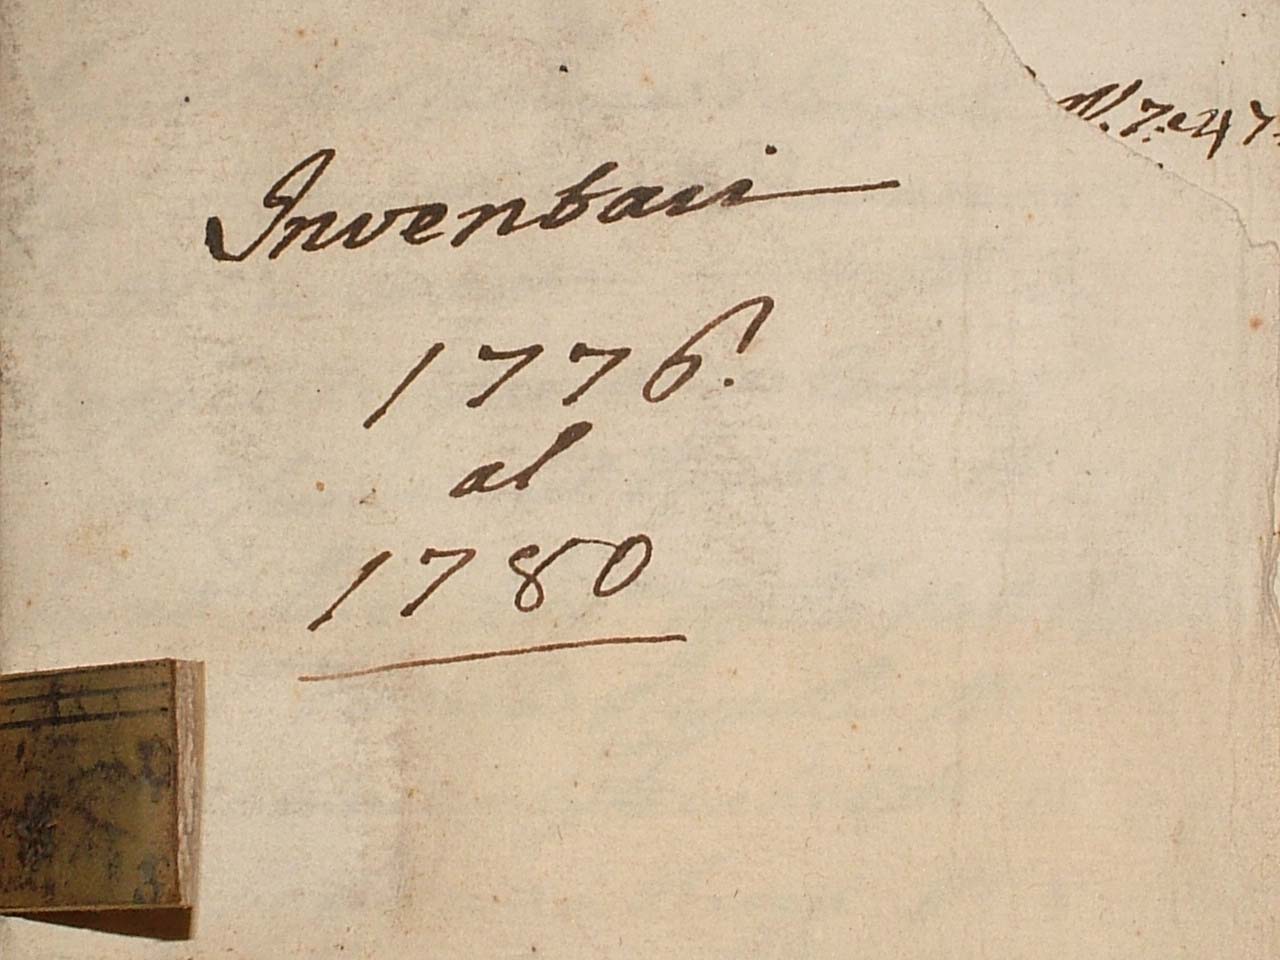 N. 7: e 47.
Inventari
1776.
al
1780